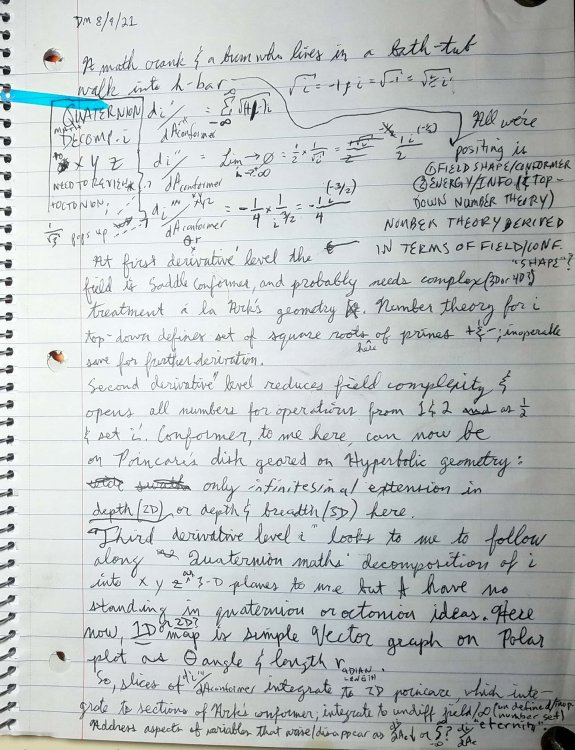 DM 8/9/21
A math crank & a bum who lives in a bath-tub
walk into h-bar
√i = -1 & i = √-1 =
QUATERNION
MATHS
DECOMP. i
to
x y z
NEED TO REVIEW
+OCTONION,
1/√3 pops up
di/dAconformer = ∞ Σ -∞
di''/dAconformer = Lim → Ø = 1/2 x 1/√i =
di'''/dAconformer = -1/4 x 1/i^3/2 = -1/4 i^(-3/2)
θ r
All we're
positing is
① FIELD SHAPE/CONFORMER
② ENERGY/INFO (& TOP-
DOWN NUMBER THEORY)
NUMBER THEORY DERIVED
IN TERMS OF FIELD/CONF.
"SHAPE"?
At first derivative' level the
field is Saddle Conformer, and probably needs complex (3D or 4D?)
treatment á la Ark's geometry. Number theory for i
top-down defines set of square roots of primes + & -; inoperable
here
save for further derivation.
Second derivative'' level reduces field complexity &
opens all numbers for operations from 1 & 2 as 1/2
& set i. Conformer, to me here, can now be
on Poincaré's disk geared on Hyperbolic geometry:
only infinitesimal extension in
depth (2D) or depth & breadth (3D) here.
Third derivative level i''' looks to me to follow
along Quaternion maths' decomposition of i
into x y z 3-D planes to me but I have no
standing in quaternion or octonion ideas. Here
now, 1D or 2D? map is simple Vector graph on Polar
plot as θ angle & length r RADIAN LENGTH.
So, slices of di'''/dAconformer integrate to 2D poincare which inte-
grate to sections of Ark's conformer, integrate to undiff field/∞ (undefined/
number set) "eternity"
Address aspects of variables that wave/disappear as